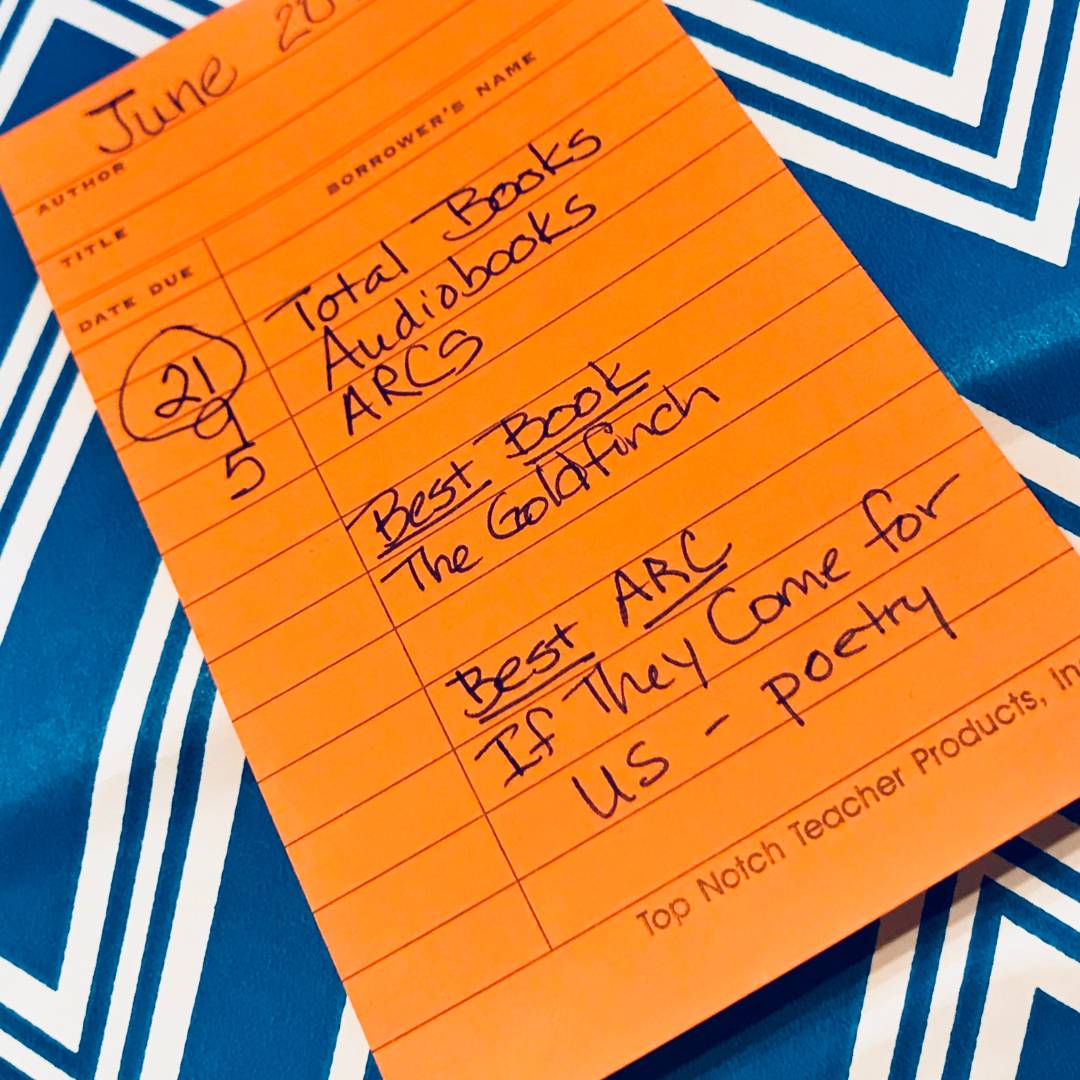 June 20
AUTHOR
TITLE
DATE DUE BORROWER'S NAME
21 Total Books
9 Audiobooks
5 ARCS
Best Book
The Goldfinch
Best ARC
If They Come for
US - poetry
Top Notch Teacher Products, In